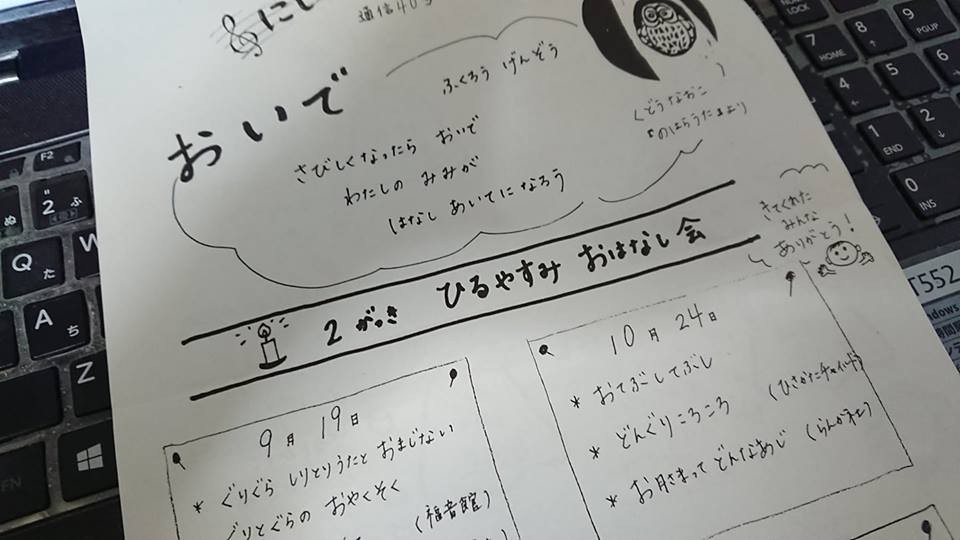 にし
通信40号
おいで
ふくろう げんぞう
さびしくなったら おいで
わたしの みみが
はなし あいてに なろう
くどうなおこ
『のはらうた』より
きてくれた
みんな
ありがとう!
2 がっき ひるやすみ おはなし会
9月 19日
* ぐりぐら しりとりうたと おまじない
ぐりとぐらの おやくそく
(福音館)
10月 24日
* おてぶしてぶし
* どんぐりころころ (ひさかたチャイルド)
* お月さまって どんなあじ (らんか社)
F2
2 ふ
ぬ
Q た
W
A ち
Z
FN
LOCK
7 HOME
8
9 PGUP
4
5
6
1 END
2
0 INS
T552